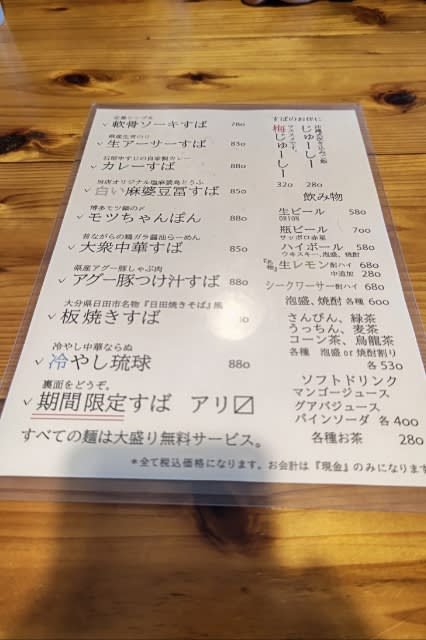 定番シンプル
✓ 軟骨ソーキすば 780
県産生青のり
✓ 生アーサーすば 830
石垣牛すじの自家製カレー
✓ カレーすば 880
当店オリジナル塩麻婆島とうふ
✓ 白い麻婆豆冨すば 850
博多モツ鍋の〆
✓ モツちゃんぽん 880
昔ながらの鶏ガラ醤油らーめん
✓ 大衆中華すば 850
県産アグー豚しゃぶ肉
✓ アグー豚つけ汁すば 880
大分県日田市名物『日田焼きそば』風
✓ 板焼きすば
冷やし中華ならぬ
✓ 冷やし琉球 880
裏面をどうぞ。
✓ 期間限定すば アリ☑
すべての麺は大盛り無料サービス。
すばのお伴に
じゅーしー
280
梅じゅーしー
320
飲み物
生ビール 580
ORION
瓶ビール 700
サッポロ赤星
ハイボール 580
ウヰスキー、泡盛、焼酎
『名物』生レモン酎ハイ 680
中追加 280
シークワーサー酎ハイ 680
泡盛、焼酎 各種 600
さんぴん、緑茶
うっちん、麦茶
コーン茶、烏龍茶
各種 泡盛 or 焼酎割り
各 530
ソフトドリンク
マンゴージュース
グアバジュース
パインソーダ 各 400
各種お茶 280
*全て税込価格になります。お会計は『現金』のみになります